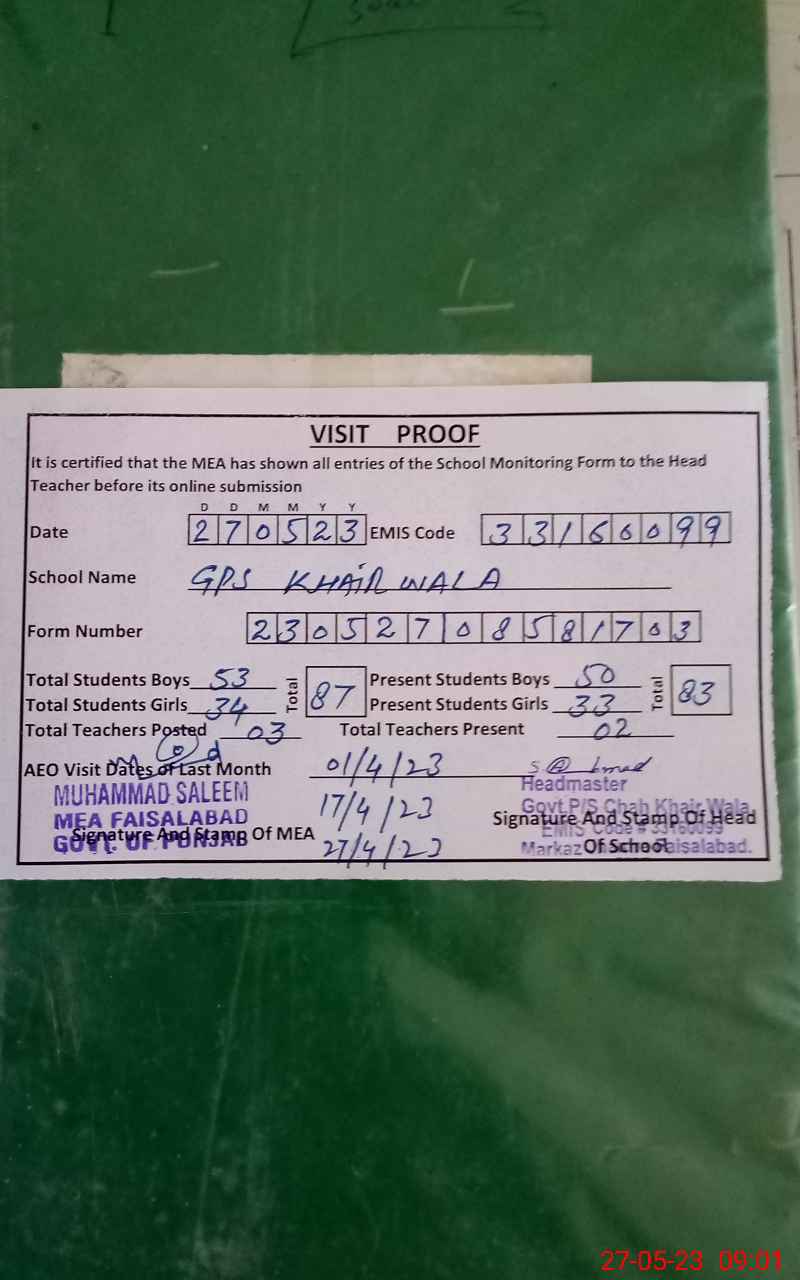 VISIT PROOF
It is certified that the MEA has shown all entries of the School Monitoring Form to the Head
Teacher before its online submission
D D M M Y Y
Date 270523 EMIS Code 33160099
School Name GPS KHAIR WALA
Form Number 23052708581703
Total Students Boys 53 Total 87 Present Students Boys 50 Total 83
Total Students Girls 34 Present Students Girls 33
Total Teachers Posted 03 Total Teachers Present 02
AEO Visit Dates of Last Month 01/4/23
17/4/23
27/4/23
MUHAMMAD SALEEM
MEA FAISALABAD
GOVT. OF PUNJAB
Signature And Stamp Of MEA
Headmaster
Govt P/S Chah Khair Wala
EMIS Code # 33160099
Markaz Faisalabad.
Signature And Stamp Of Head
Of School
27-05-23 09:01